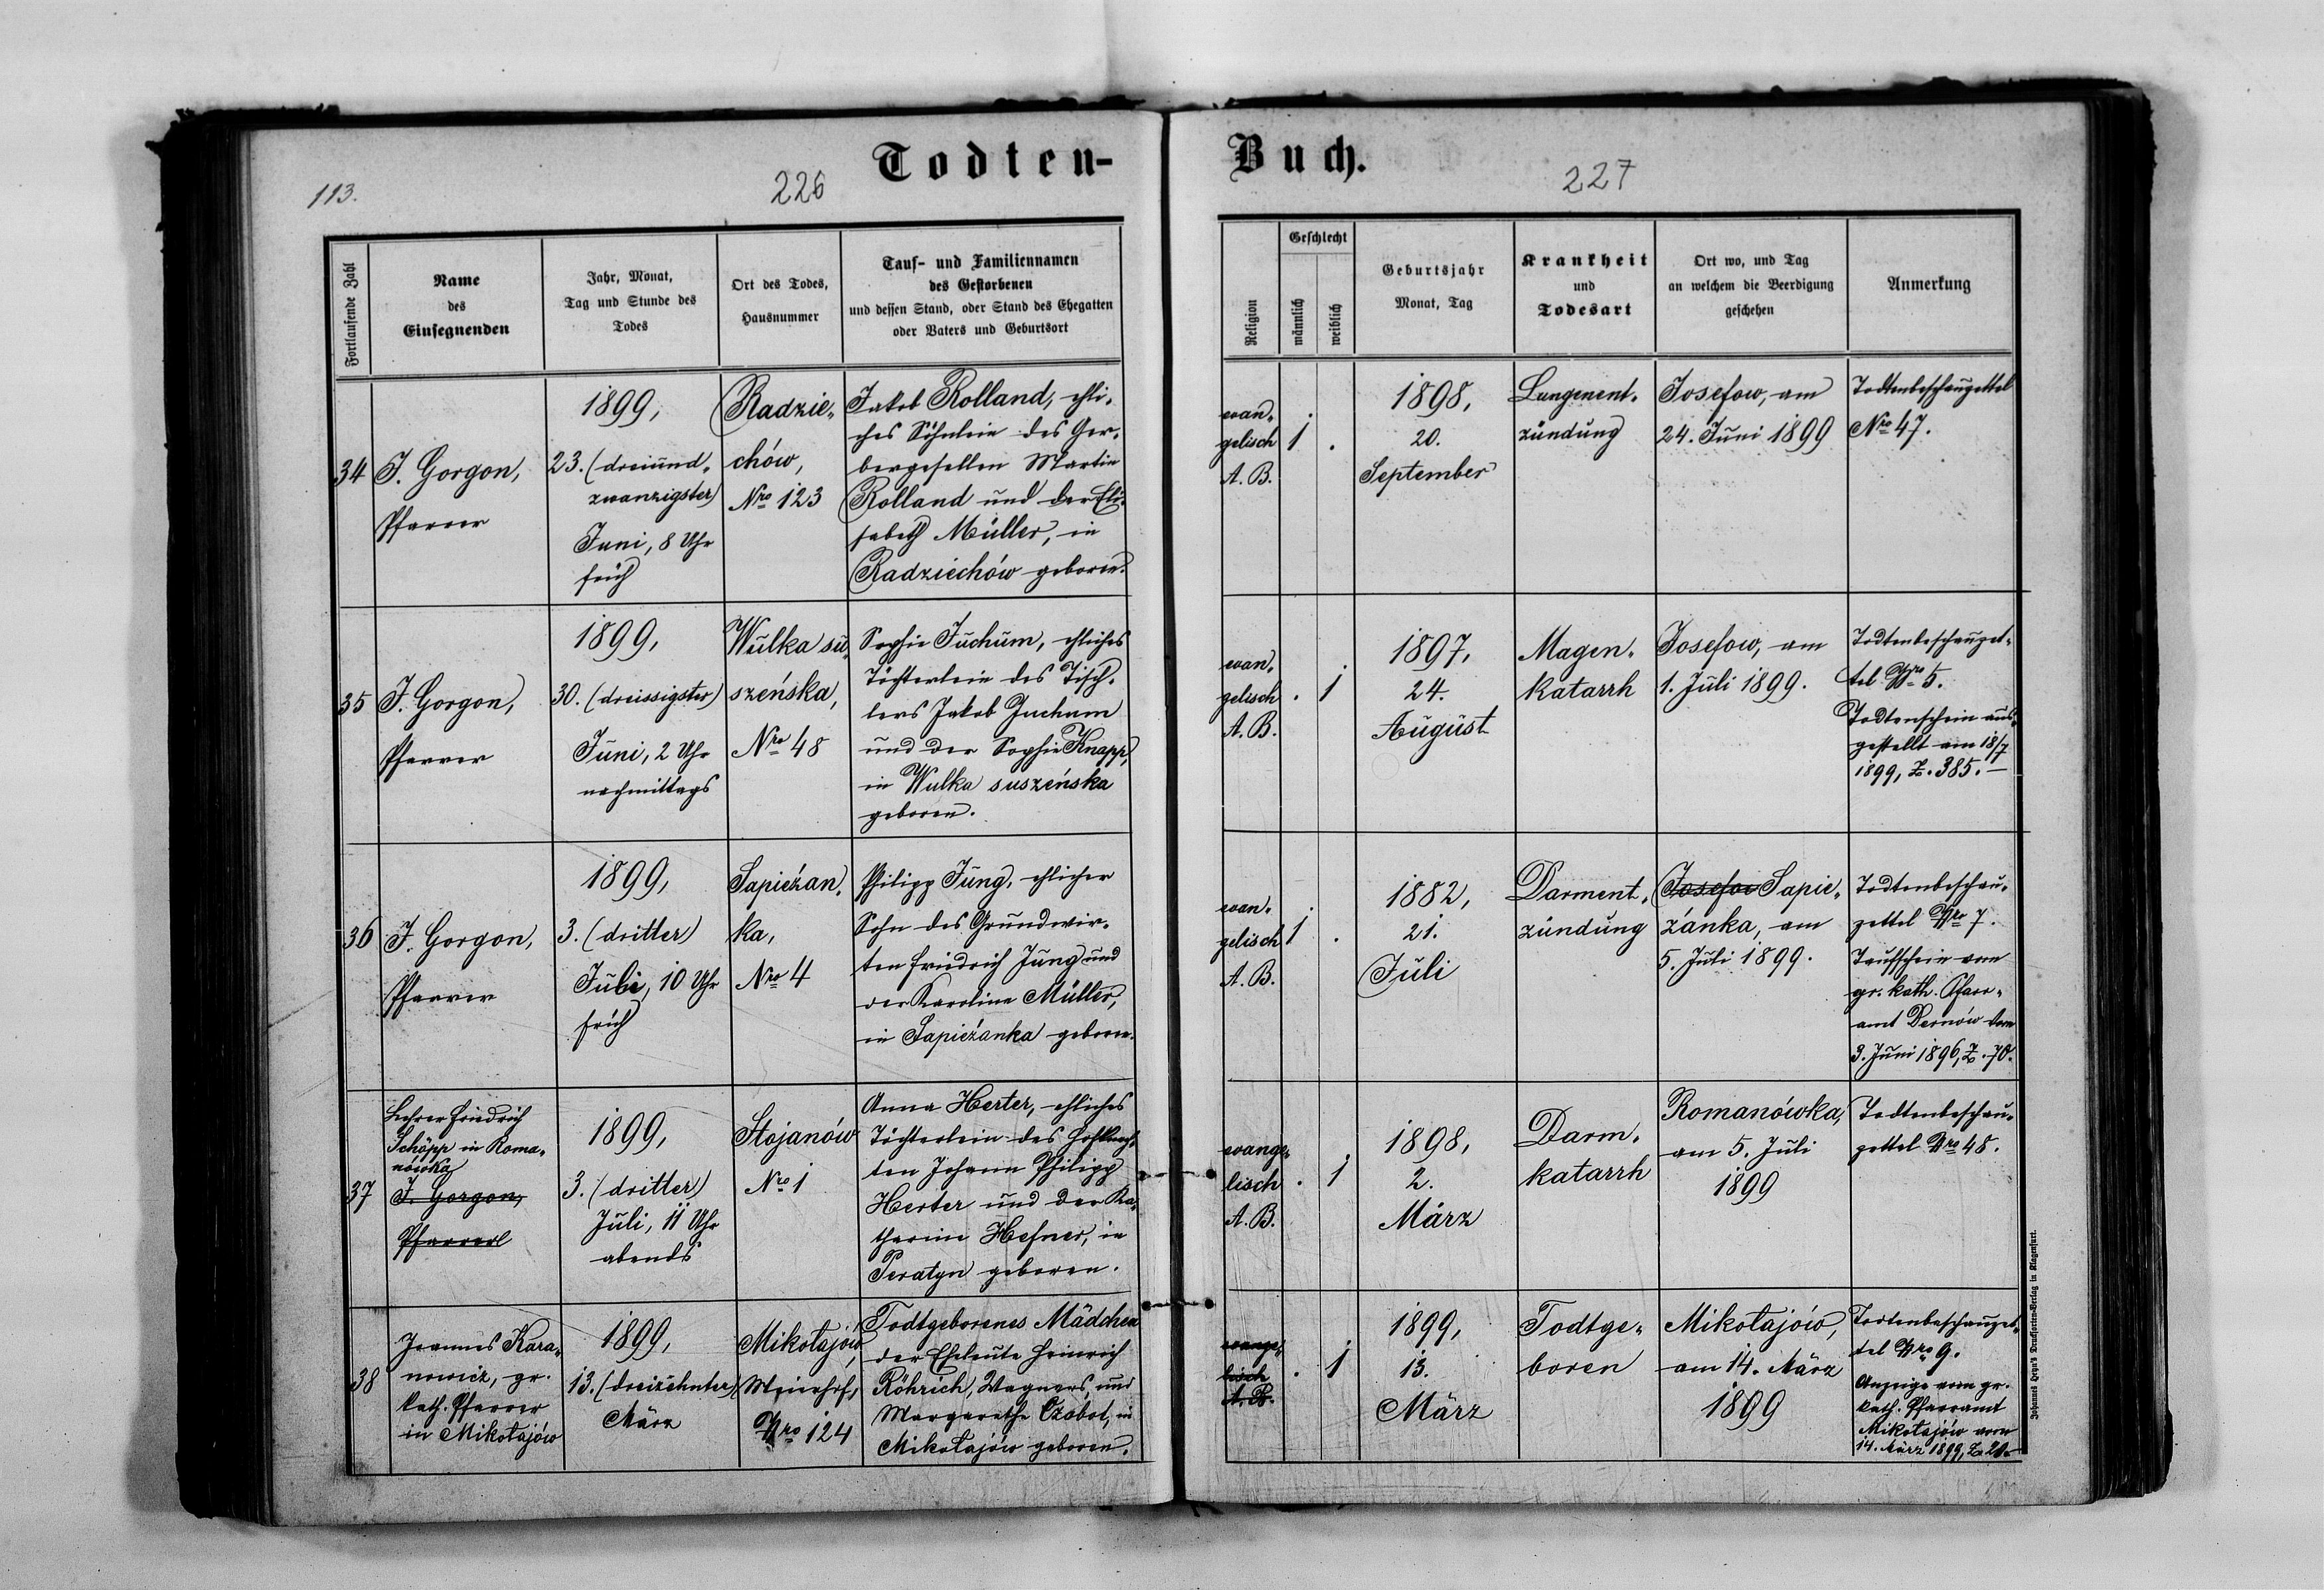 Todten-
Buch.
113.
226
227
Fortlaufende Zahl
Name
des
Einsegnenden
Jahr, Monat,
Tag und Stunde des
Todes
Ort des Todes,
Hausnummer
Tauf- und Familiennamen
des Gestorbenen
und dessen Stand, oder Stand des Ehegatten
oder Vaters und Geburtsort
Religion
Geschlecht
männlich
weiblich
Geburtsjahr
Monat, Tag
Krankheit
und
Todesart
Ort wo, und Tag
an welchem die Beerdigung
geschehen
Anmerkung
34
J. Gorgon,
Pfarrer
1899,
23. (dreiund-
zwanzigster)
Juni, 8 Uhr
früh
Radzie-
chów,
Nro 123
Jakob Rolland, ehli-
ches Söhnlein des Ger-
bergesellen Martin
Rolland und der Eli-
sabeth Müller, in
Radziechów geboren.
evan-
gelisch
A. B.
1
.
1898,
20.
September
Lungenent-
zündung
Josefow, am
24. Juni 1899
Todtenbeschauzettel
Nro 47.
35
J. Gorgon,
Pfarrer
1899,
30. (dreissigster)
Juni, 2 Uhr
nachmittags
Wulka su-
szeńska,
Nro 48
Sophie Juchum, ehliches
Töchterlein des Tisch-
lers Jakob Juchum
und der Sophie Knapp,
in Wulka suszeńska
geboren.
evan-
gelisch
A. B.
.
1
1897,
24.
August
Magen-
katarrh
Josefow, am
1. Juli 1899.
Todtenbeschauzet-
tel Nro 5.
Todtenschein aus-
gestellt am 18/7
1899, Z. 385.—
36
J. Gorgon,
Pfarrer
1899,
3. (dritter)
Juli, 10 Uhr
früh
Sapieżan-
ka,
Nro 4
Philipp Jung, ehlicher
Sohn des Grundwir-
ten Friedrich Jung und
der Karoline Müller,
in Sapieżanka geboren.
evan-
gelisch
A. B.
1
.
1882,
21.
Juli
Darment-
zündung
Josefow Sapie-
żanka, am
5. Juli 1899.
Todtenbeschau-
zettel Nro 7.
Taufschein vom
gr. kath. Pfarr-
amt Dernów vom
3. Juni 1896, Z. 70.
37
Lehrer Friedrich
Schöpp in Roma-
nówka
J. Gorgon,
Pfarrer
1899,
3. (dritter)
Juli, 11 Uhr
abends
Stojanów
Nro 1
Anna Herter, ehliches
Töchterlein des Hofknech-
ten Johann Philipp
Herter und der Ka-
tharina Hefner, in
Peratyn geboren.
evange-
lisch
A. B.
.
1
1898,
2.
März
Darm-
katarrh
Romanówka,
am 5. Juli
1899
Todtenbeschau-
zettel Nro 48.
38
Joannes Kara-
nowicz, gr.
kath. Pfarrer
in Mikołajów
1899,
13. (dreizehnter)
März
Mikołajów,
Meierhof,
Nro 124
Todtgeborenes Mädchen
der Eheleute Heinrich
Röhrich, Wagners, und
Margarethe Czobot, in
Mikołajów geboren.
evange-
lisch
A. B.
.
1
1899,
13.
März
Todtge-
boren
Mikołajów,
am 14. März
1899
Todtenbeschauzet-
tel Nro 9.
Anzeige vom gr.
kath. Pfarramt
Mikołajów vom
14. März 1899, Z. 20.
Johannes Heyn's Drucksorten-Verlag in Klagenfurt.